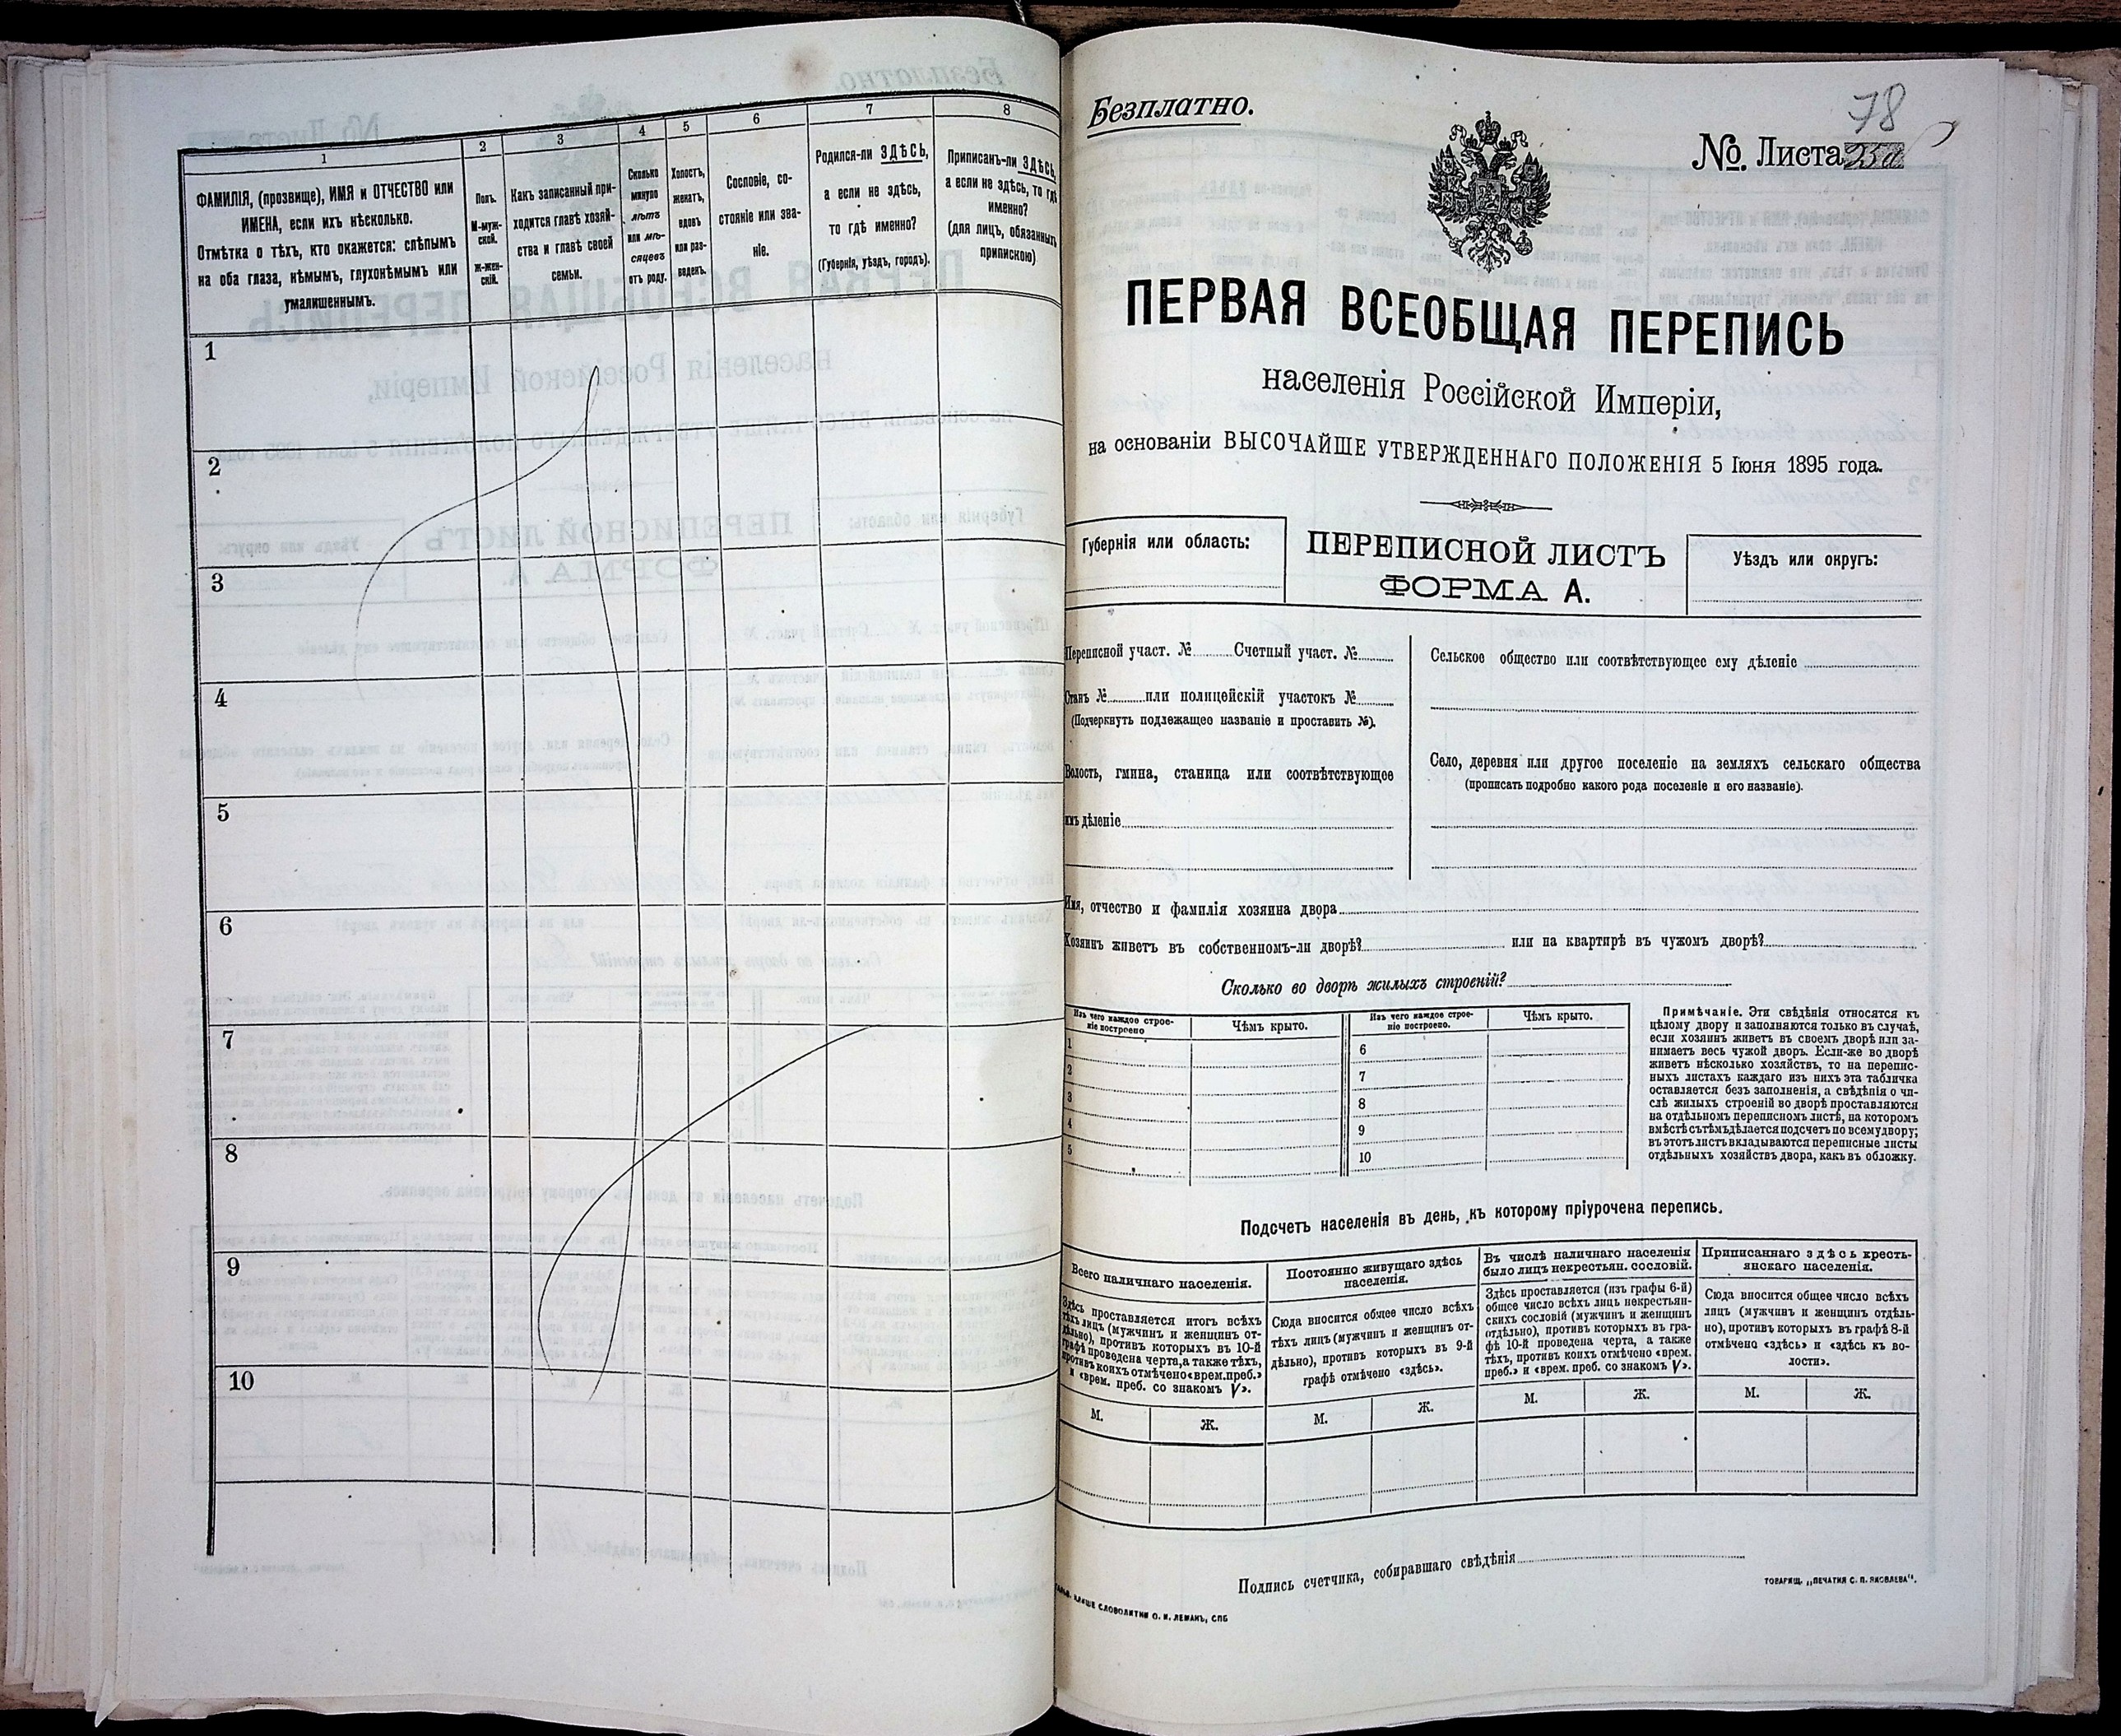 1
2
3
4
5
6
7
8
ФАМИЛІЯ, (прозвище), ИМЯ и ОТЧЕСТВО или
ИМЕНА, если ихъ нѣсколько.
Отмѣтка о тѣхъ, кто окажется: слѣпымъ
на оба глаза, нѣмымъ, глухонѣмымъ или
умалишеннымъ.
Полъ.
М-муж-
ской.
Ж-жен-
скій.
Какъ записанный при-
ходится главѣ хозяй-
ства и главѣ своей
семьи.
Сколько
минуло
лѣтъ
или мѣ-
сяцевъ
отъ роду.
Холостъ,
женатъ,
вдовъ
или раз-
веденъ.
Сословіе, со-
стояніе или зва-
ніе.
Родился-ли ЗДѢСЬ,
а если не здѣсь,
то гдѣ именно?
(Губернія, уѣздъ, городъ).
Приписанъ-ли ЗДѢСЬ,
а если не здѣсь, то гдѣ
именно?
(для лицъ, обязанныхъ
припискою)
1
2
3
4
5
6
7
8
9
10
Безплатно.
78
№ Листа
ПЕРВАЯ ВСЕОБЩАЯ ПЕРЕПИСЬ
населенія Россійской Имперіи,
на основаніи ВЫСОЧАЙШЕ УТВЕРЖДЕННАГО ПОЛОЖЕНІЯ 5 Іюня 1895 года.
Губернія или область:
ПЕРЕПИСНОЙ ЛИСТЪ
ФОРМА А.
Уѣздъ или округъ:
Переписной участ. № Счетный участ. №
Станъ № или полицейскій участокъ №
(Подчеркнуть подлежащее названіе и проставить №).
Волость, гмина, станица или соотвѣтствующее
имъ дѣленіе
Сельское общество или соотвѣтствующее ему дѣленіе
Село, деревня или другое поселеніе на земляхъ сельскаго общества
(прописать подробно какого рода поселеніе и его названіе).
Имя, отчество и фамилія хозяина двора
Хозяинъ живетъ въ собственномъ-ли дворѣ? или на квартирѣ въ чужомъ дворѣ?
Сколько во дворѣ жилыхъ строеній?
Изъ чего каждое строе-
ніе построено
Чѣмъ крыто.
Изъ чего каждое строе-
ніе построено.
Чѣмъ крыто.
1
2
3
4
5
6
7
8
9
10
Примѣчаніе. Эти свѣдѣнія относятся къ
цѣлому двору и заполняются только въ случаѣ,
если хозяинъ живетъ въ своемъ дворѣ или за-
нимаетъ весь чужой дворъ. Если-же во дворѣ
живетъ нѣсколько хозяйствъ, то на перепис-
ныхъ листахъ каждаго изъ нихъ эта табличка
оставляется безъ заполненія, а свѣдѣнія о чи-
слѣ жилыхъ строеній во дворѣ проставляются
на отдѣльномъ переписномъ листѣ, на которомъ
вмѣстѣ съ тѣмъ дѣлается подсчетъ по всему двору;
въ этотъ листъ вкладываются переписные листы
отдѣльныхъ хозяйствъ двора, какъ въ обложку.
Подсчетъ населенія въ день, къ которому пріурочена перепись.
Всего наличнаго населенія.
Здѣсь проставляется итогъ всѣхъ
тѣхъ лицъ (мужчинъ и женщинъ от-
дѣльно), противъ которыхъ въ 10-й
графѣ проведена черта, а также тѣхъ,
противъ коихъ отмѣчено «врем. преб.»
и «врем. преб. со знакомъ V».
М. Ж.
Постоянно живущаго здѣсь
населенія.
Сюда вносится общее число всѣхъ
тѣхъ лицъ (мужчинъ и женщинъ от-
дѣльно), противъ которыхъ въ 9-й
графѣ отмѣчено «здѣсь».
М. Ж.
Въ числѣ наличнаго населенія
было лицъ некрестьян. сословій.
Здѣсь проставляется (изъ графы 6-й)
общее число всѣхъ лицъ некрестьян-
скихъ сословій (мужчинъ и женщинъ
отдѣльно), противъ которыхъ въ гра-
фѣ 10-й проведена черта, а также
тѣхъ, противъ коихъ отмѣчено «врем.
преб.» и «врем. преб. со знакомъ V».
М. Ж.
Приписаннаго здѣсь кресть-
янскаго населенія.
Сюда вносится общее число всѣхъ
лицъ (мужчинъ и женщинъ отдѣль-
но), противъ которыхъ въ графѣ 8-й
отмѣчено «здѣсь» и «здѣсь къ во-
лости».
М. Ж.
Подпись счетчика, собиравшаго свѣдѣнія
КЛИШЕ СЛОВОЛИТНИ О. И. ЛЕМАНЪ, СПБ
ТОВАРИЩ. „ПЕЧАТНЯ С. П. ЯКОВЛЕВА".